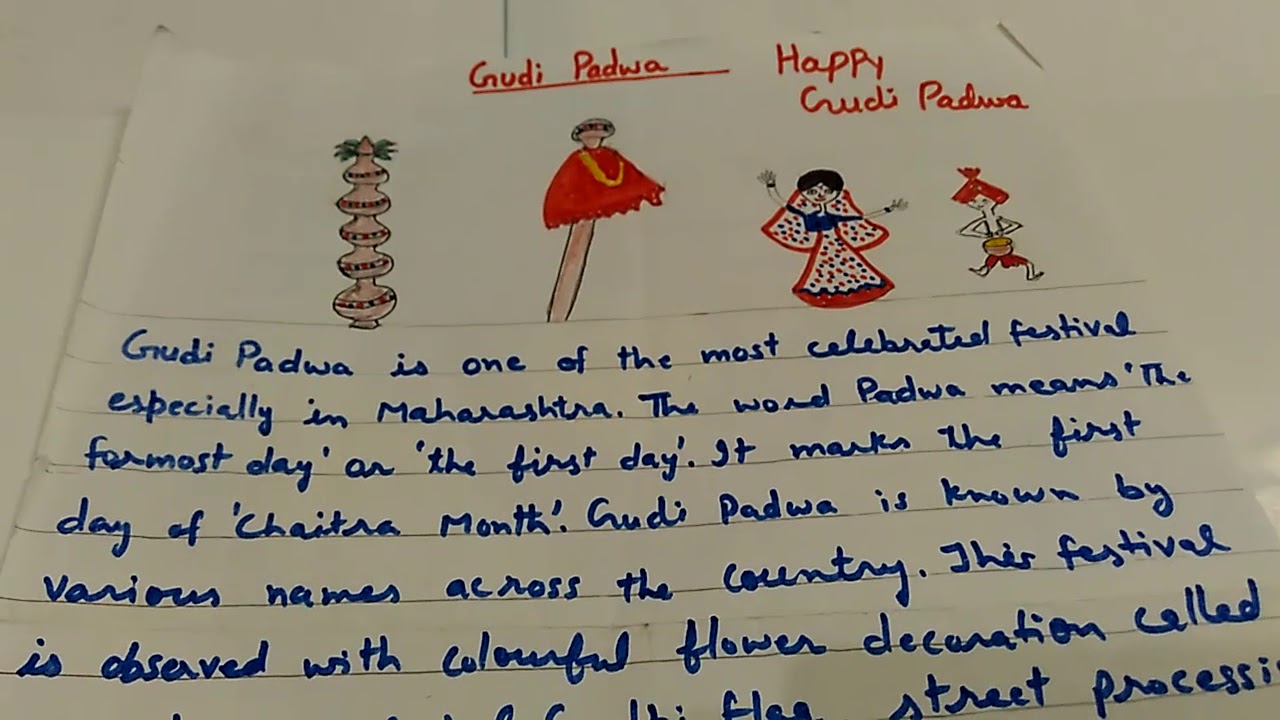 Gudi Padwa
Happy
Gudi Padwa
Gudi Padwa is one of the most celebrated festival
especially in Maharashtra. The word Padwa means 'The
formost day' or 'the first day'. It marks the first
day of 'Chaitra Month'. Gudi Padwa is known by
various names across the country. This festival
is observed with colourful flower decoration called
flag, street processi